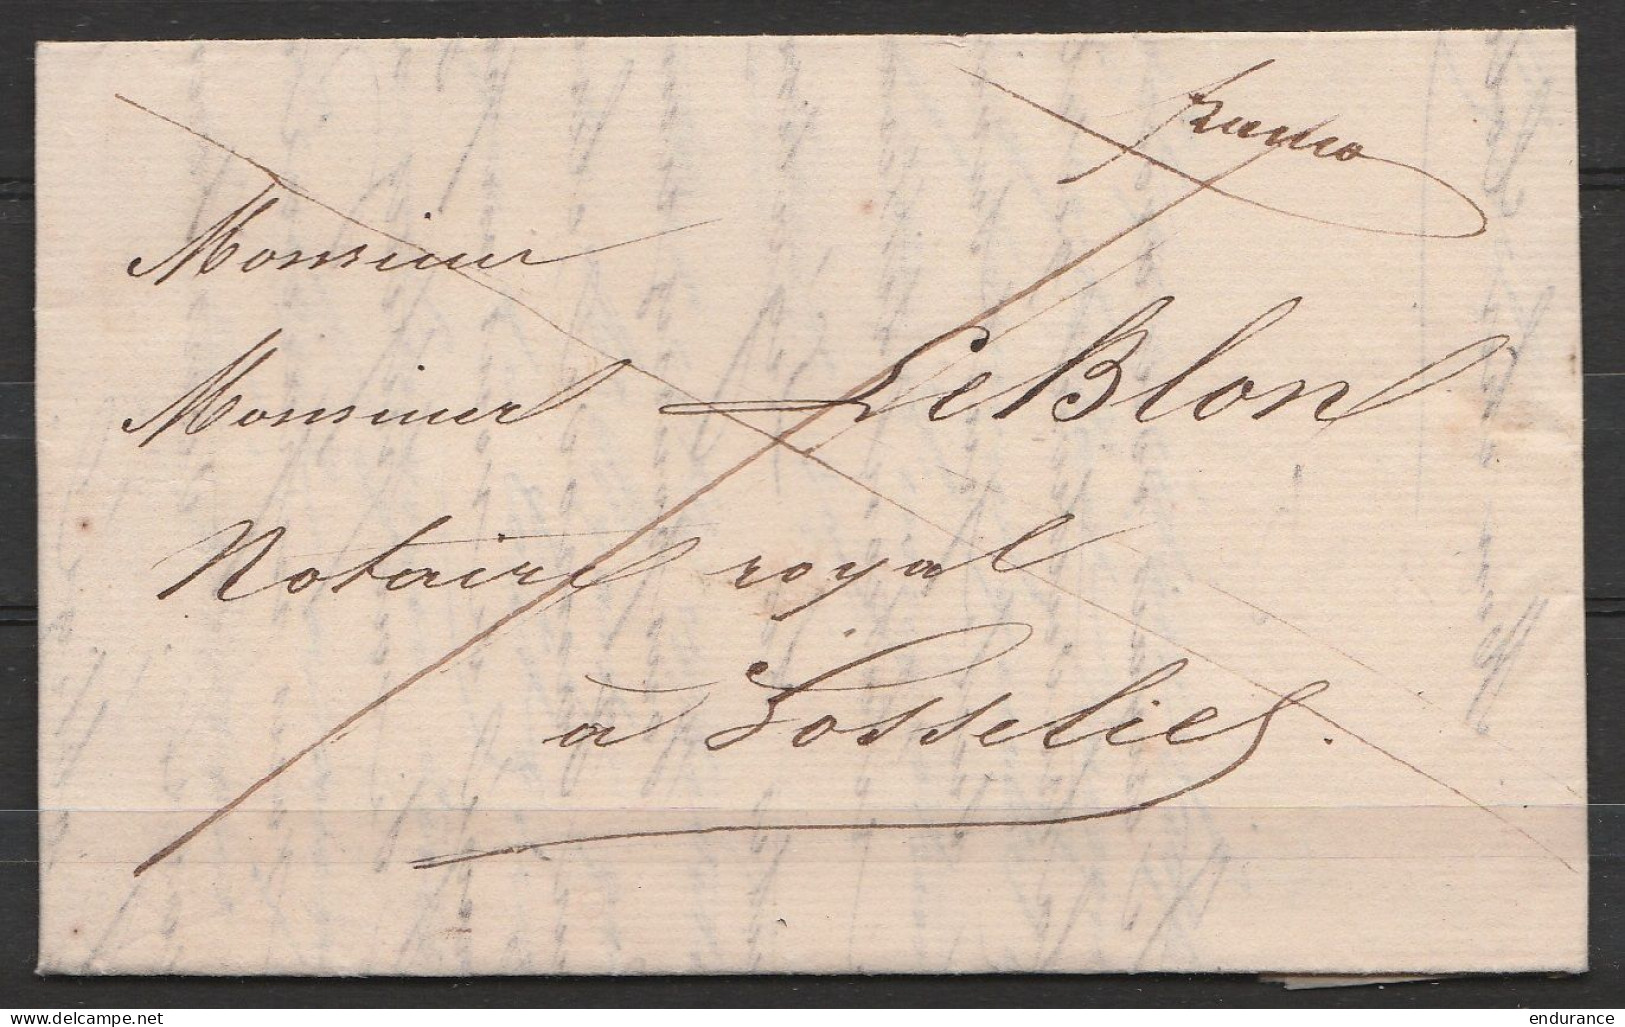 franco
Monsieur
Monsieur LeBlon
Notaire royal
à Gosselies.
delcampe.net
endurance